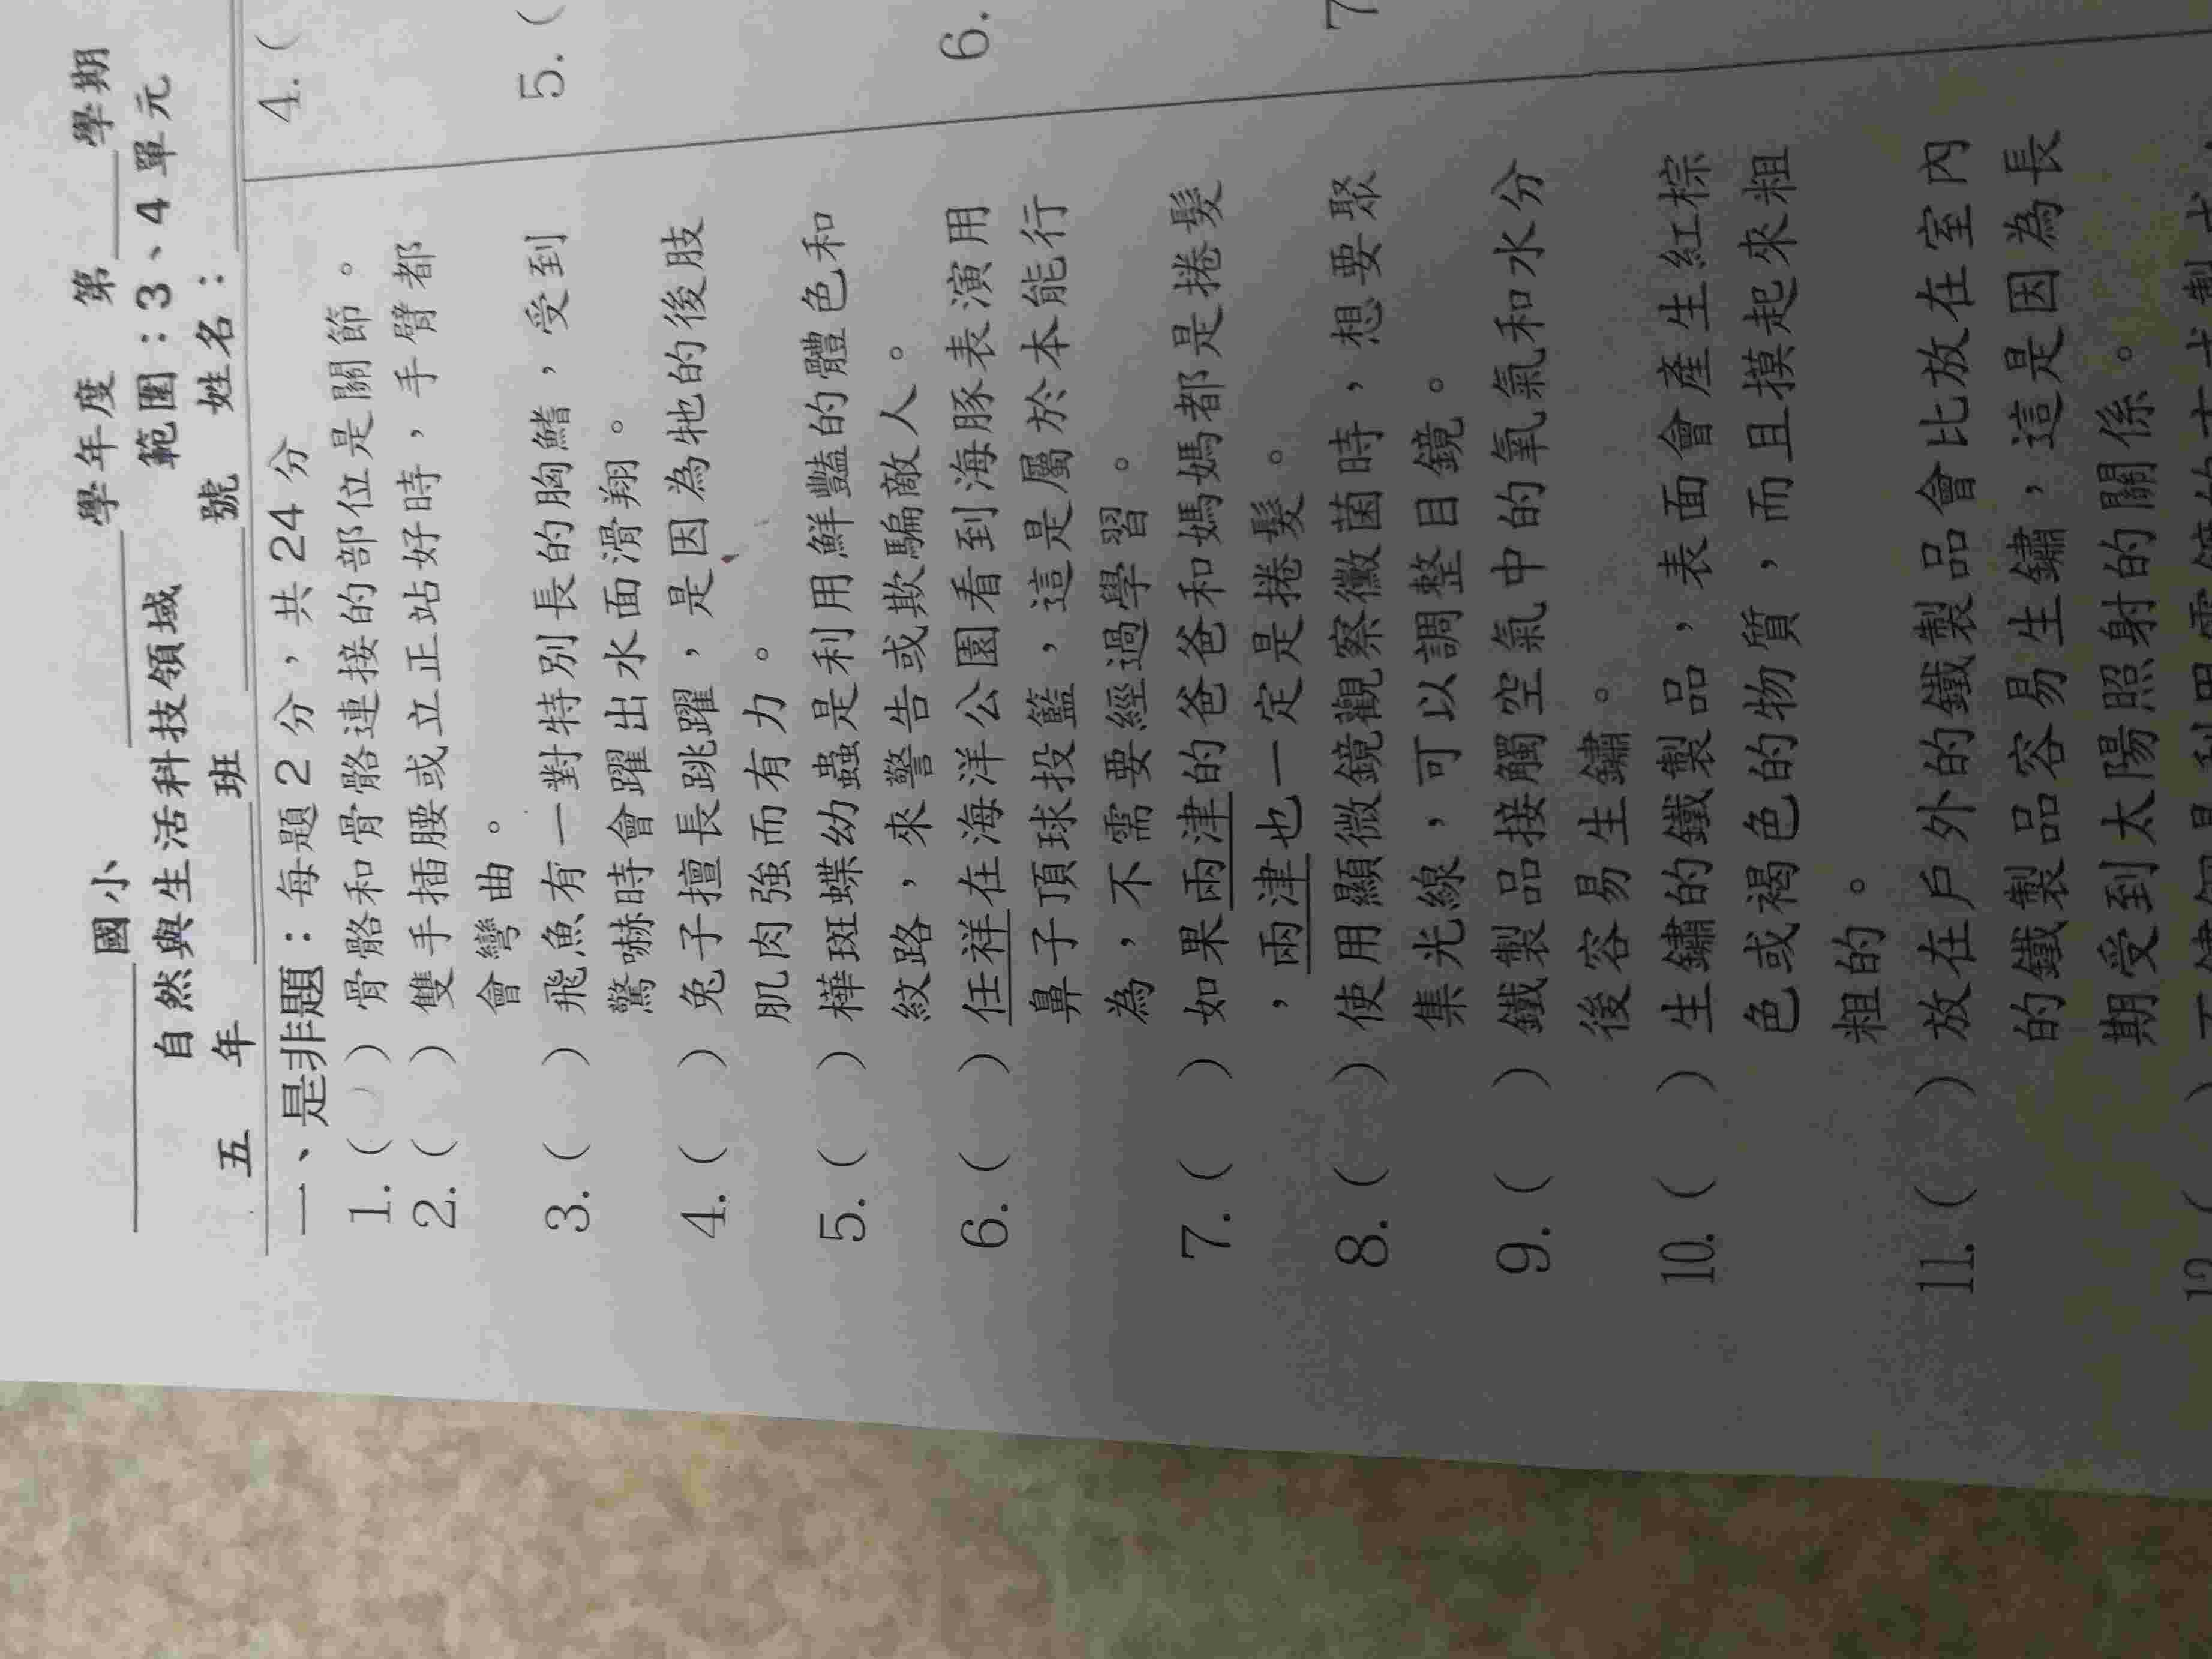 國小　學年度　第　學期
自然與生活科技領域　範圍：3、4單元
五　年　班　號　姓名：
一、是非題：每題2分，共24分
1.(　) 骨骼和骨骼連接的部位是關節。
2.(　) 雙手插腰或立正站好時，手臂都
會彎曲。
3.(　) 飛魚有一對特別長的胸鰭，受到
驚嚇時會躍出水面滑翔。
4.(　) 兔子擅長跳躍，是因為牠的後肢
肌肉強而有力。
5.(　) 樺斑蝶幼蟲是利用鮮豔的體色和
紋路，來警告或欺騙敵人。
6.(　) 任祥在海洋公園看到海豚表演用
鼻子頂球投籃，這是屬於本能行
為，不需要經過學習。
7.(　) 如果兩津的爸爸和媽媽都是捲髮
，兩津也一定是捲髮。
8.(　) 使用顯微鏡觀察黴菌時，想要聚
集光線，可以調整目鏡。
9.(　) 鐵製品接觸空氣中的氧氣和水分
後容易生鏽。
10.(　) 生鏽的鐵製品，表面會產生紅棕
色或褐色的物質，而且摸起來粗
粗的。
11.(　) 放在戶外的鐵製品會比放在室內
的鐵製品容易生鏽，這是因為長
期受到太陽照射的關係。
12.(　)
4.(
5.(
6.
7